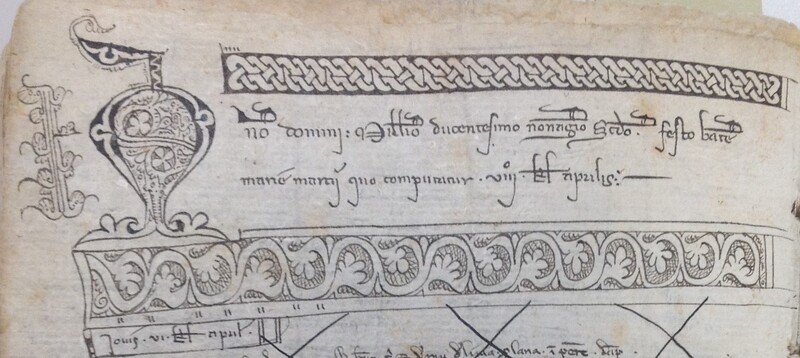 no domini : Millio ducentesimo nonagio Scdo. festo bate
marie marcij quo computatur . viij . kl aprilis.
Iouis . vi . kl april .